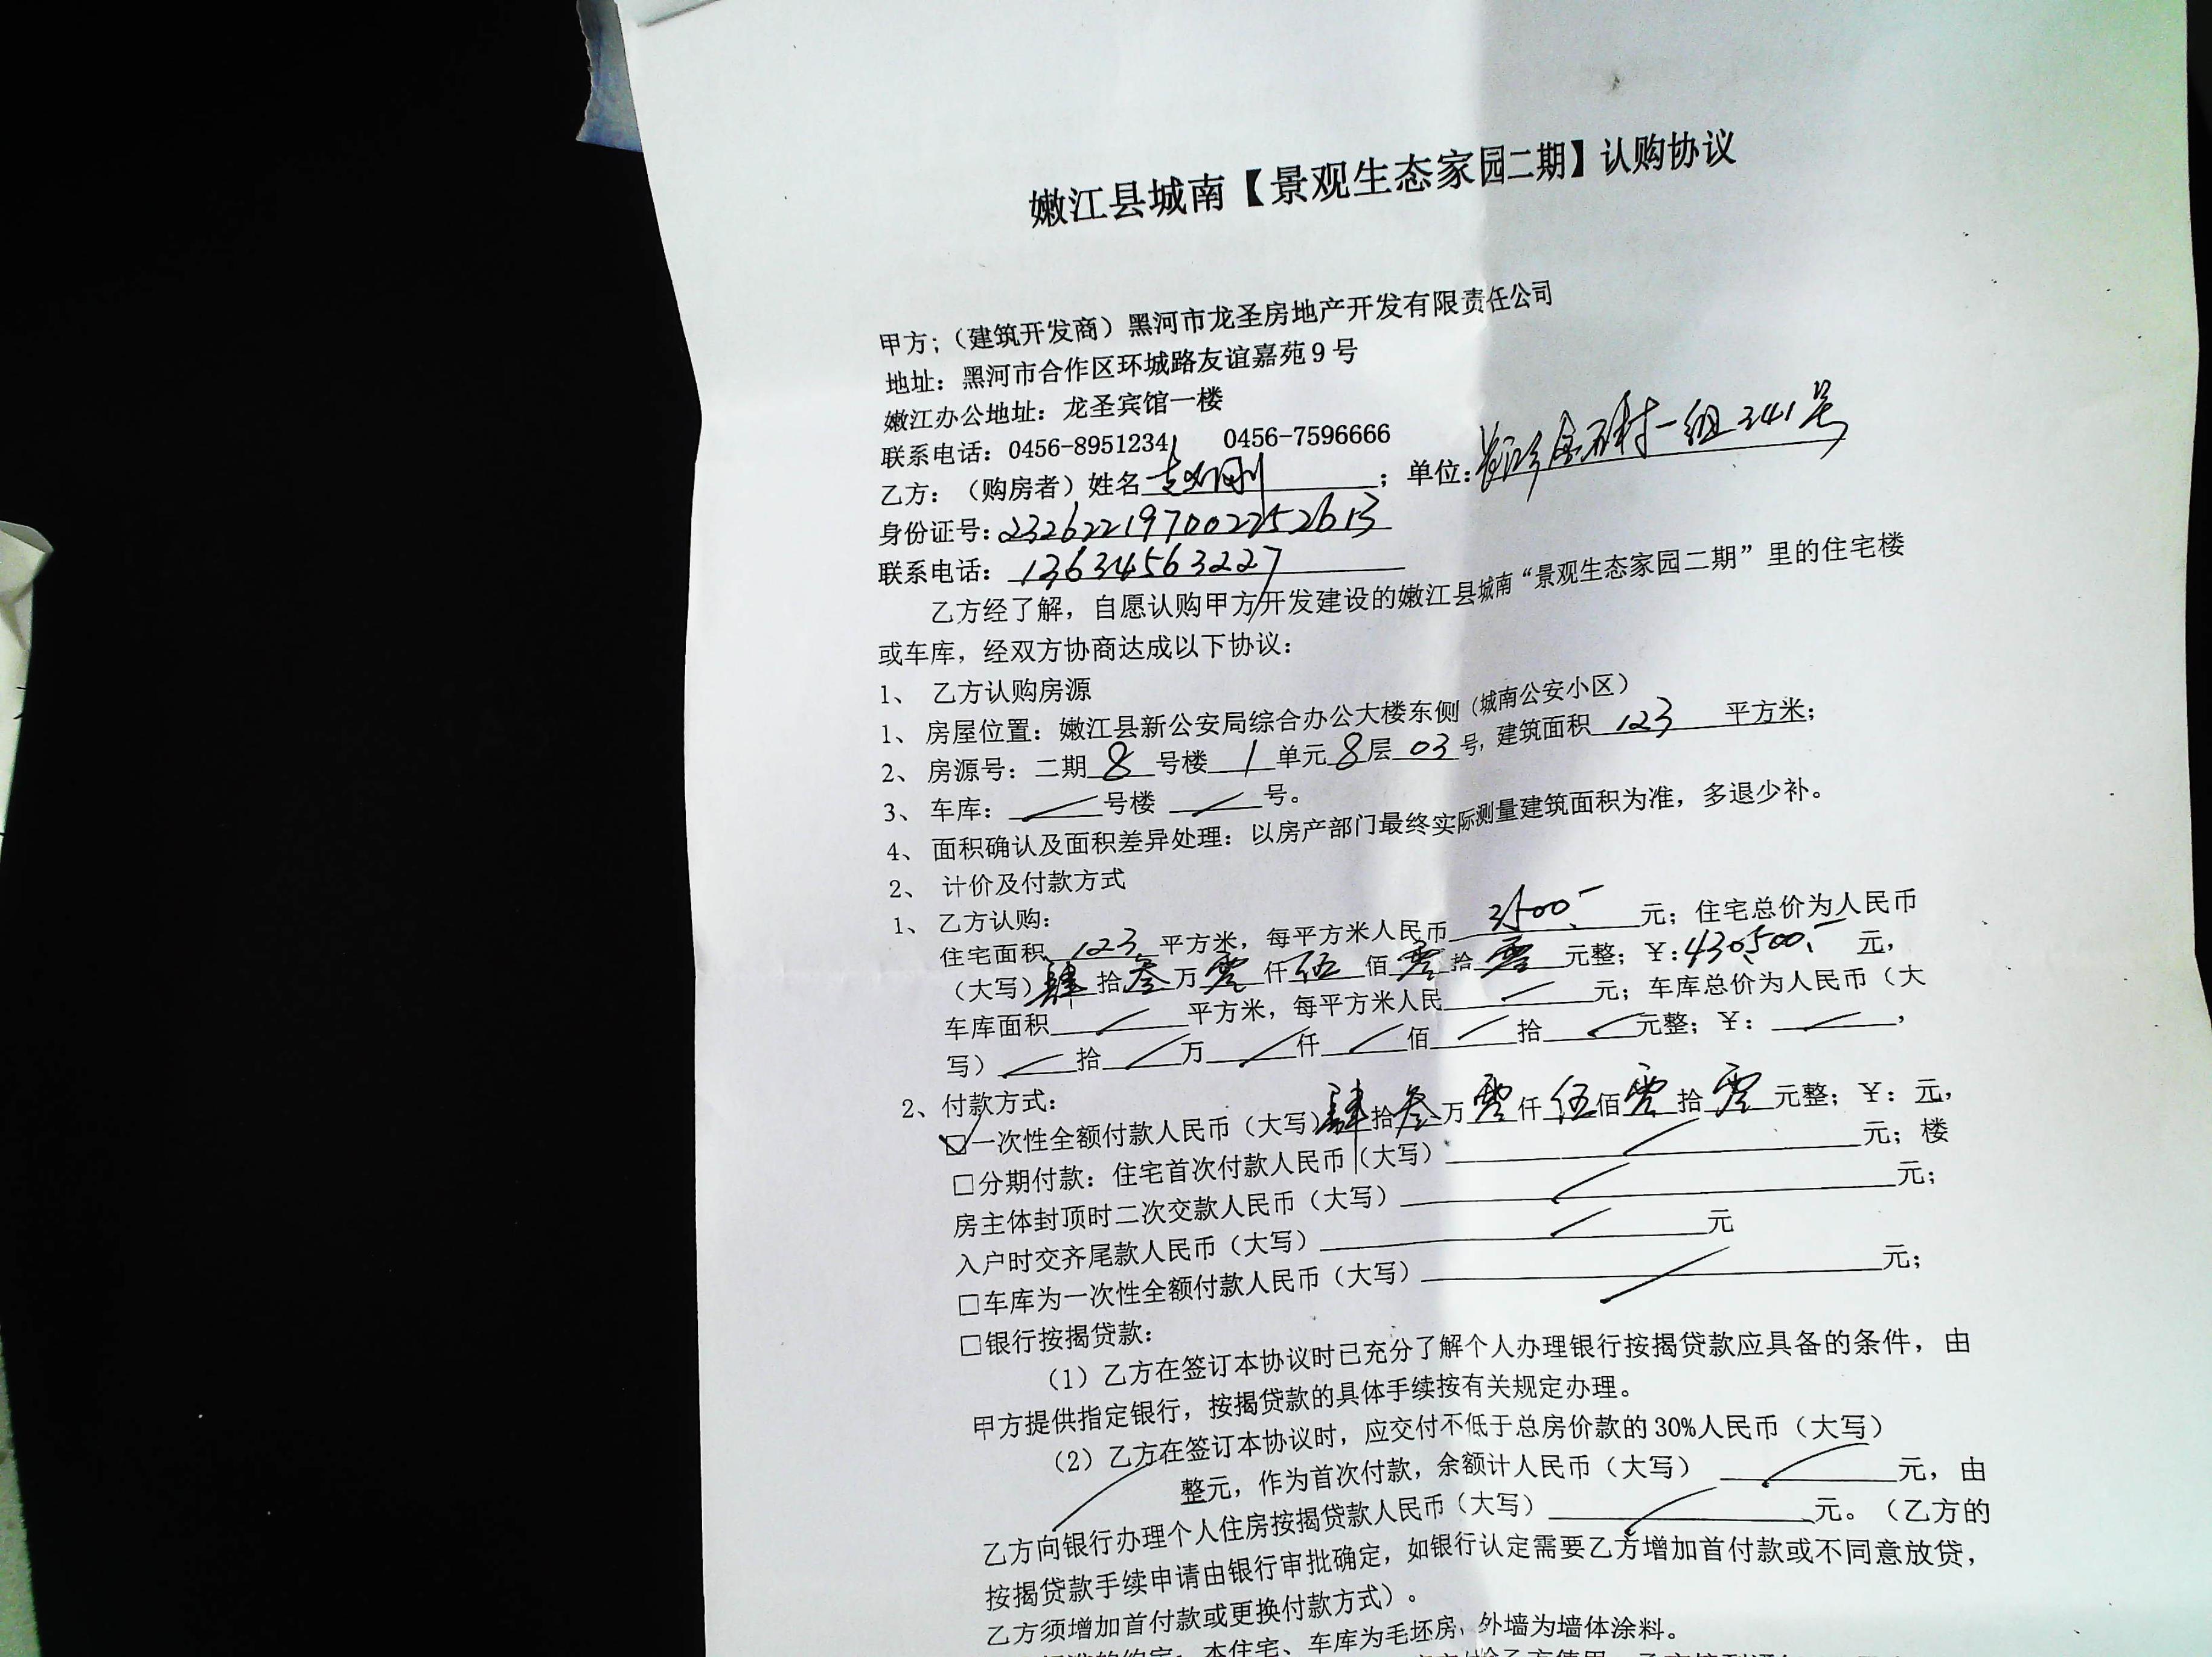 嫩江县城南【景观生态家园二期】认购协议
甲方;（建筑开发商）黑河市龙圣房地产开发有限责任公司
地址：黑河市合作区环城路友谊嘉苑9号
嫩江办公地址：龙圣宾馆一楼
联系电话：0456-8951234 0456-7596666
乙方：（购房者）姓名 ；单位： 村一组241号
身份证号：232622197002252613
联系电话：13634563227
乙方经了解，自愿认购甲方开发建设的嫩江县城南“景观生态家园二期”里的住宅楼
或车库，经双方协商达成以下协议：
1、 乙方认购房源
1、 房屋位置：嫩江县新公安局综合办公大楼东侧（城南公安小区）
2、 房源号：二期 8 号楼 1 单元 8 层 03 号，建筑面积 123 平方米；
3、 车库： 号楼 号。
4、 面积确认及面积差异处理：以房产部门最终实际测量建筑面积为准，多退少补。
2、 计价及付款方式
1、 乙方认购：
住宅面积 123 平方米，每平方米人民币 3500.- 元；住宅总价为人民币
（大写）肆拾叁万零仟伍佰零拾零元整；￥:430500.- 元，
车库面积 平方米，每平方米人民 元；车库总价为人民币（大
写） 拾 万 仟 佰 拾 元整；￥： ，
2、付款方式：
☑一次性全额付款人民币（大写）肆拾叁万零仟伍佰零拾零元整；￥：元，
□分期付款：住宅首次付款人民币（大写） 元；楼
房主体封顶时二次交款人民币（大写） 元；
入户时交齐尾款人民币（大写） 元
□车库为一次性全额付款人民币（大写） 元；
□银行按揭贷款：
（1）乙方在签订本协议时已充分了解个人办理银行按揭贷款应具备的条件，由
甲方提供指定银行，按揭贷款的具体手续按有关规定办理。
（2）乙方在签订本协议时，应交付不低于总房价款的30%人民币（大写）
整元，作为首次付款，余额计人民币（大写） 元，由
乙方向银行办理个人住房按揭贷款人民币（大写） 元。（乙方的
按揭贷款手续申请由银行审批确定，如银行认定需要乙方增加首付款或不同意放贷，
乙方须增加首付款或更换付款方式）。
本住宅、车库为毛坯房，外墙为墙体涂料。